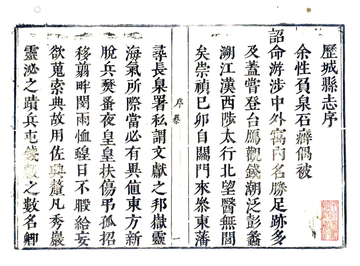 歷城縣志序
余性負泉石癖偶被
詔命游涉中外寓內名勝足跡多
及蓋嘗登台鴈觀錢潮泛彭蠡
溯江漢西陟太行北望醫無閭
矣崇禎己卯自關門來參東藩
序卷
一
尋長臬署私謂文獻之邦嶽靈
海氣所際當必有異値東方新
脫兵燹蚤夜皇皇扶傷弔孤招
移翦畔閔雨恤蝗日不暇給妄
欲蒐索典故用佐釐凡秀巖
靈泌之蹟兵屯錢穀之數名卿